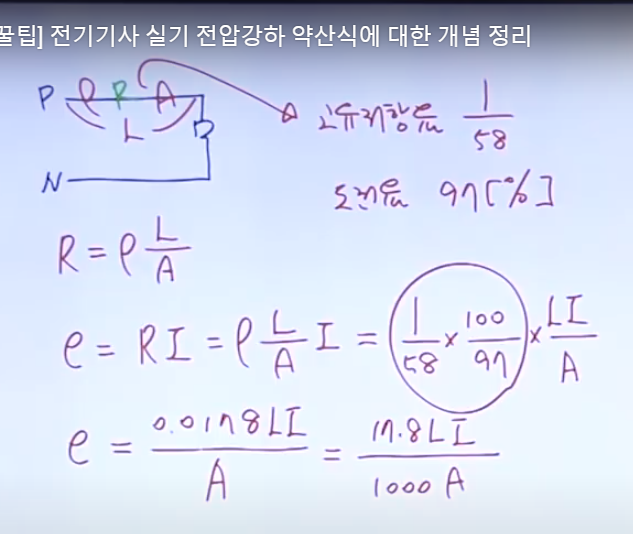 꿀팁] 전기기사 실기 전압강하 약산식에 대한 개념 정리
P ρ R A
L
N
고유저항률 1/58
도전율 97[%]
R = ρ L/A
e = RI = ρ L/A I = 1/58 × 100/97 × LI/A
e = 0.0178LI/A = 17.8LI/1000A